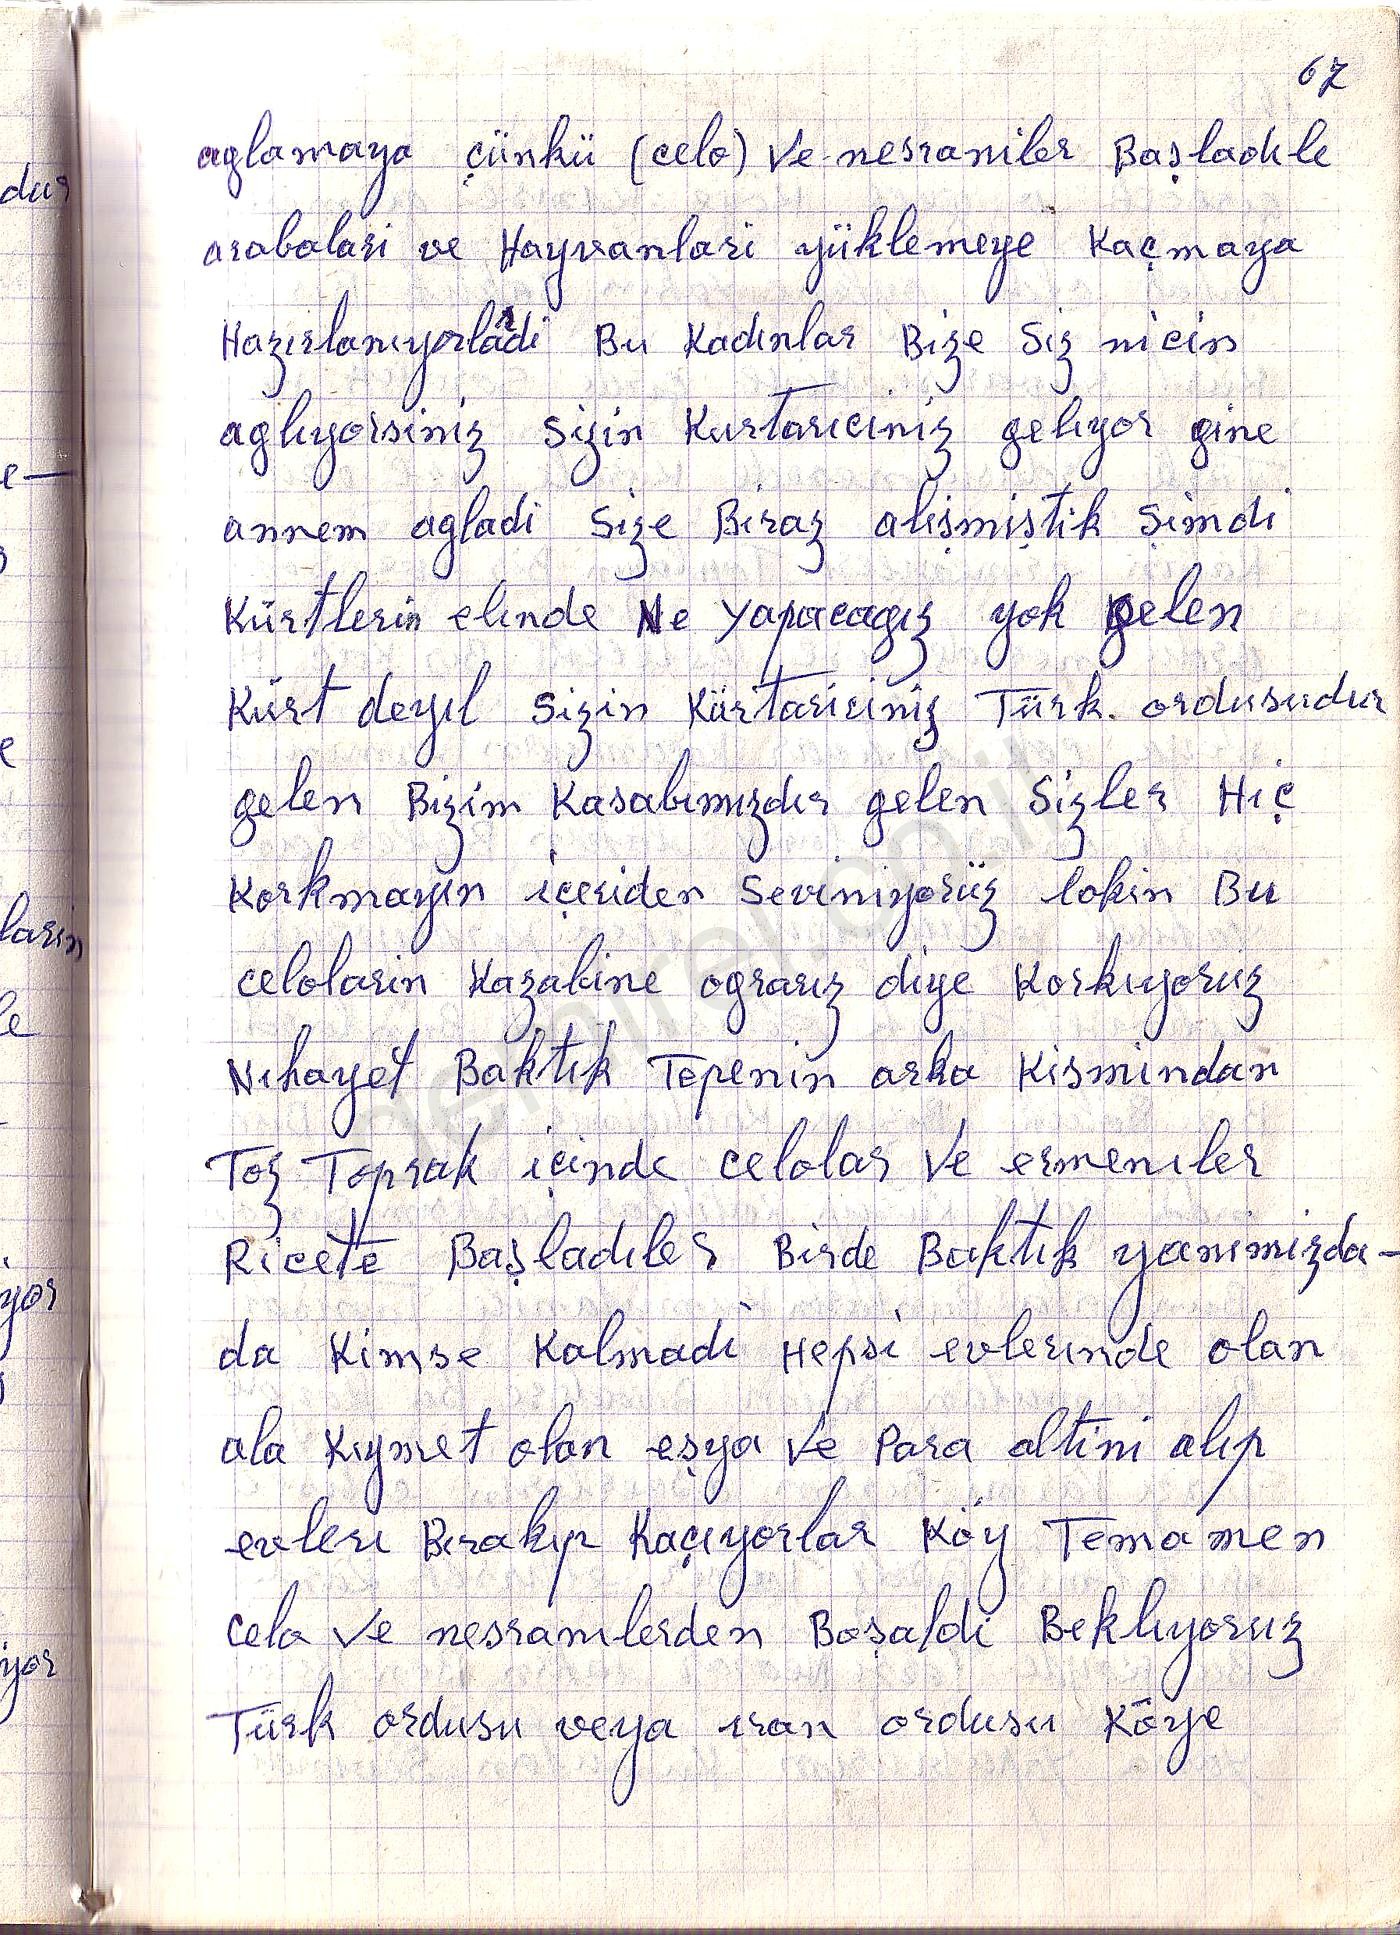 67
aglamaya çünkü (celo) Ve nesraniler Başladıle
arabalari ve Hayvanlari yüklemeye Kaçmaya
Hazırlanıyorlardi Bu Kadınlar Bize Siz nicin
aglıyorsiniz Sizin Kurtariciniz gelıyor gine
annem agladi Size Biraz alışmiştik Şimdi
Kürtlerin elinde Ne Yapacagız yok gelen
Kürt deyıl Sizin Kürtariciniz Türk. ordusudur
gelen Bizim Kasabımızdır gelen Sizler Hiç
Korkmayın içeriden Seviniyorüz lakin Bu
celolarin Kazabine ograrız diye Korkıyoruz
Nıhayet Baktık Tepenin arka Kismindan
Toz Toprak içinde celolar Ve ermenıler
Ricete Başladıler Birde Baktık yanimizda-
da Kimse Kalmadi Hepsi evlerınde olan
ala Kıymet olan eşya Ve Para altini alıp
evleri Bırakıp Kaçıyorlar Köy Temamen
Celo Ve nesranılerden Boşaldi Beklıyoruz
Türk ordusu veya ıran ordusu Köye
dur
e—
e
ların
le
yor
iyor
demirel.on.il